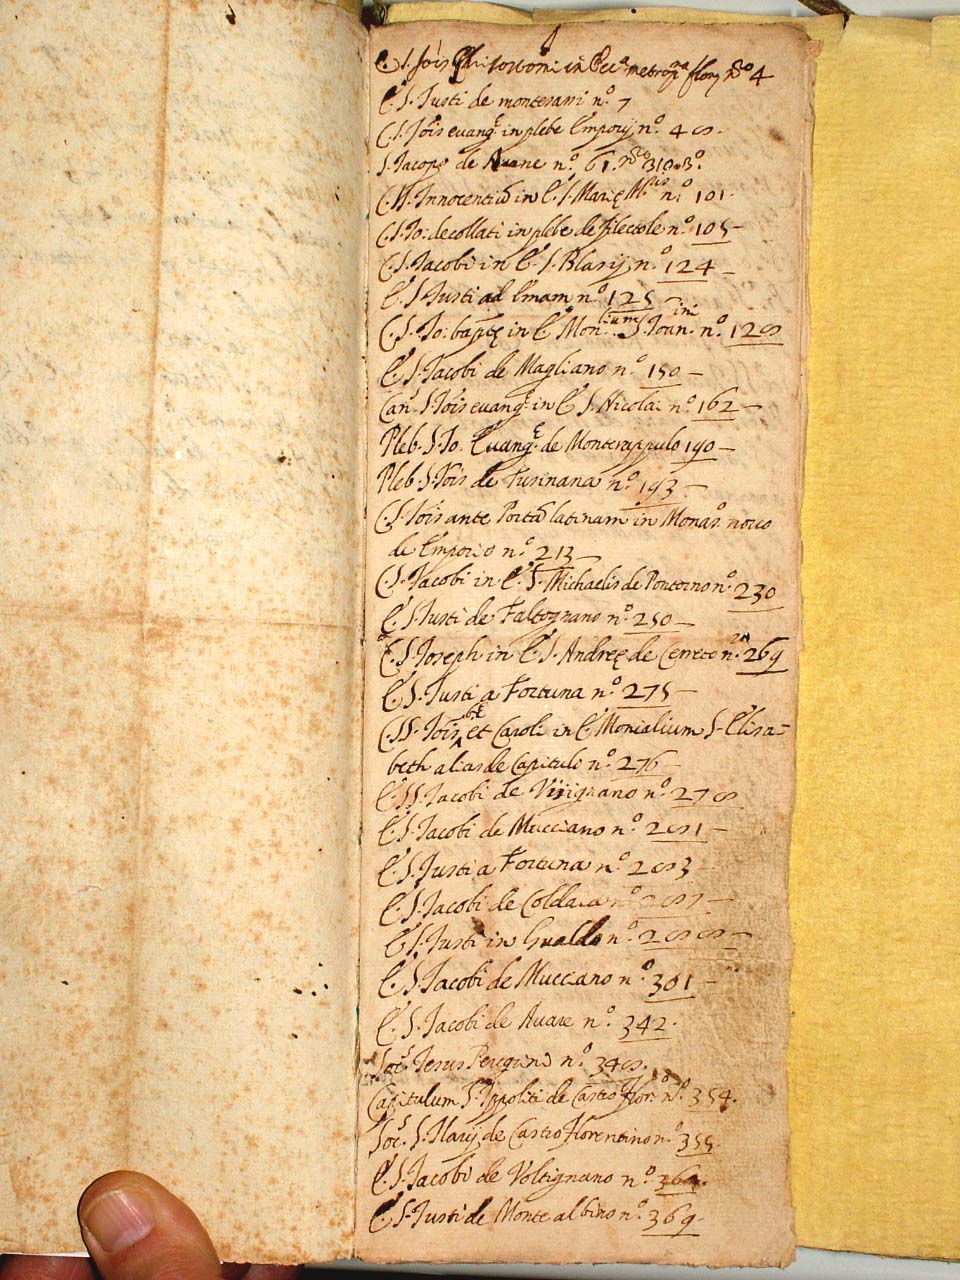 J
C. S. Jois Grisostomi in Ecc.a metrop.na flor. n.o 4
E. S. Justi de monterasri n.o 7
C. S. Jois euang.e in plebe Emporij n.o 48.
S. Jacopo de Auane n.o 61. n.o 310. 3.o
C. SS. Innocentiũ in E. S. Marię M.ris n.o 101.
C. S. Jo: decollati in plebe de filectole n.o 105 -
C. S. Jacobi in E. S. Blasij n.o 124 -
E. S. Justi ad Emam n.o 125 -
C. S. Jo: baptę in E. Mon.lium S. Joannini n.o 128
E. S. Jacobi de Magliano n.o 150 -
Can. S. Jois euang.e in E. S. Nicolai n.o 162 -
Pleb. S. Jo. Euang.e de Monterappulo 190 -
Pleb. S. Jois de Fusinana n.o 193 -
C. S. Jois ante Portã latinam in Monas.o nouo
de Emporio n.o 213 -
C. S. Jacobi in E. S. Michaelis de Pontorno n.o 230
E. S. Justi de Faltognano n.o 250 -
C. S. Joseph in E. S. Andreę de Cerreto n.o 269
E. S. Justi a Fortuna n.o 275 -
C. SS. Jois et Caroli in E. Monialium S. Elisa-
beth al.as de Capitulo n.o 276 -
E. SS. Jacobi de Virignano n.o 278
E. S. Jacobi de Mucciano n.o 281 -
E. S. Justi a Fortuna n.o 283
E. S. Jacobi de Coldaia n.o 287 -
E. S. Justi in Gualdo n.o 288 -
E. S. Jacobi de Mucciano n.o 301 -
E. S. Jacobi de Auane n.o 342.
Soc.s Jesus Peregrini n.o 348.
Capitulum S. Ippoliti de Castro flor.no n.o 354.
Soc.s S. Ilarij de Castro florentino n.o 355
E. S. Jacobi de Voltignano n.o
E. S. Justi de Monte albino n.o 369.